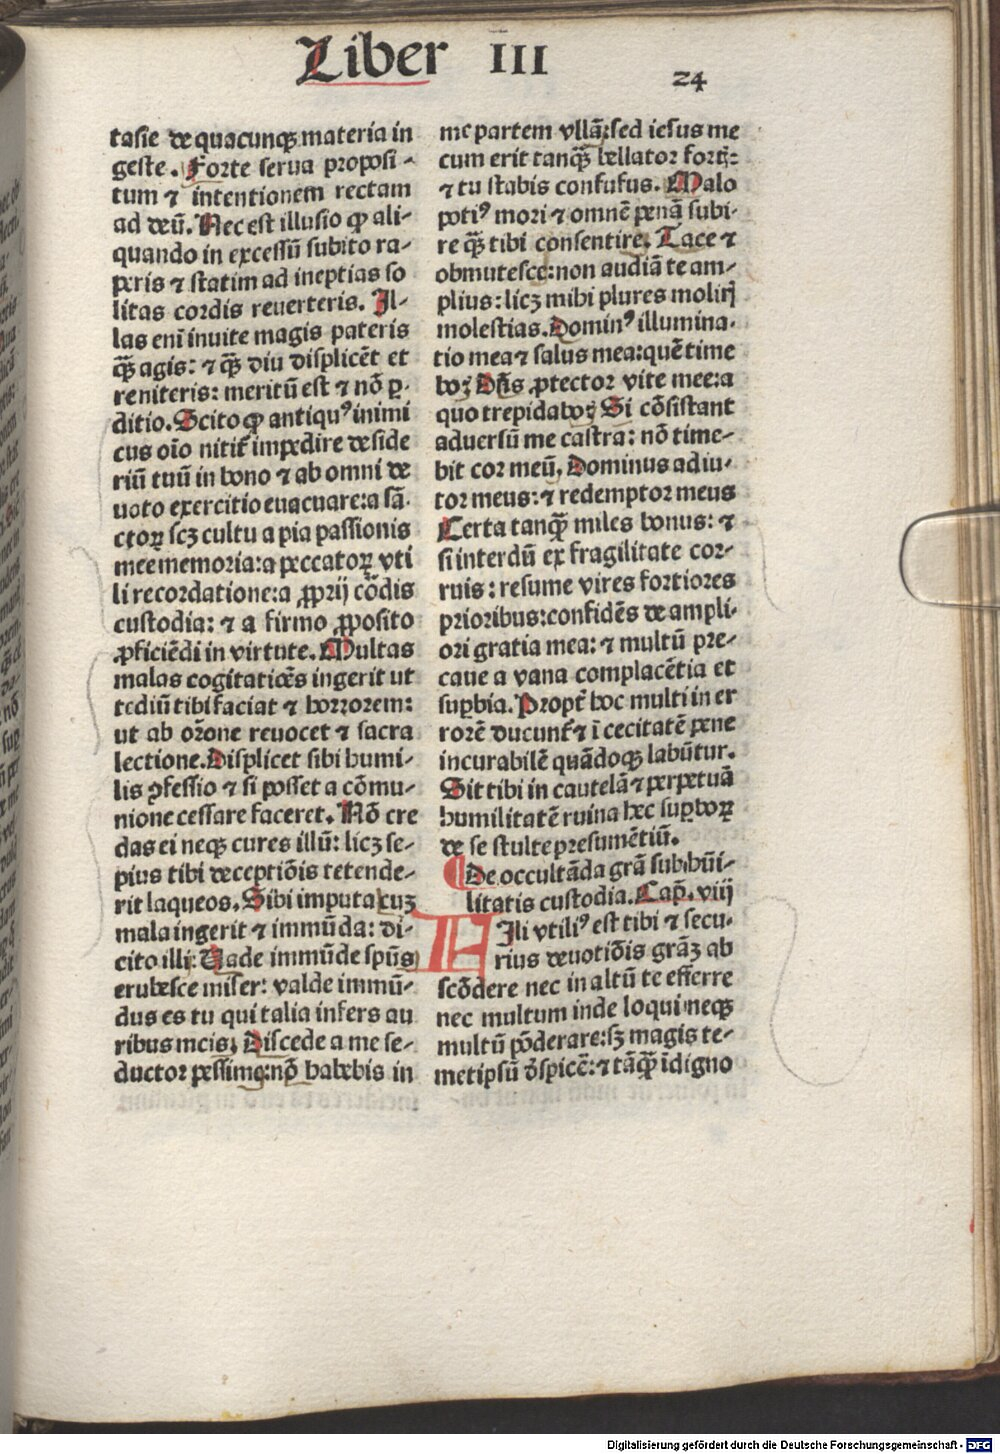 Liber III
24
tasie de quacunqꝫ materia in
geste. Forte serua proposi-
tum ⁊ intentionem rectam
ad deū. Nec est illusio ꝙ ali-
quando in excessū subito ra-
peris ⁊ statim ad ineptias so
litas cordis reuerteris. Il-
las eni inuite magis pateris
qꝫ̄ agis: ⁊ qꝫ̄ diu displicēt et
reniteris: meritū est ⁊ nō ꝑ-
ditio. Scito ꝙ antiquꝰ inimi
cus oīo nitit᷑ impedire deside
riū tuū in bono ⁊ ab omni de
uoto exercitio euacuare: a sā-
ctoꝝ scꝫ cultu a pia passionis
mee memoria: a peccatoꝝ vti
li recordatione: a ꝓprij cōdis
custodia: ⁊ a firmo ꝓposito
ꝓficiēdi in virtute. Multas
malas cogitatiōes ingerit ut
tediū tibi faciat ⁊ horrorem:
ut ab orōne reuocet ⁊ sacra
lectione. Displicet sibi humi-
lis ꝯfessio ⁊ si posset a cōmu-
nione cessare faceret. Nō cre
das ei neqꝫ cures illū: licꝫ se-
pius tibi deceptiōis tetende-
rit laqueos. Sibi imputa cuꝫ
mala ingerit ⁊ immūda: di-
cito illi: Uade immūde spūs
erubesce miser: valde immū-
dus es tu qui talia infers au
ribus meis. Discede a me se-
ductor pessime: nō habebis in
me partem vllā: sed iesus me
cum erit tanqꝫ̄ bellator fortꝭ:
⁊ tu stabis confusus. Malo
potiꝰ mori ⁊ omnē penā subi-
re qꝫ̄ tibi consentire. Tace ⁊
obmutesce: non audiā te am-
plius: licꝫ mihi plures molirꝭ
molestias. Dominꝰ illumina-
tio mea ⁊ salus mea: quē time
bo; Dn̄s ꝓtector vite mee: a
quo trepidabo; Si cōsistant
aduersū me castra: nō time-
bit cor meū. Dominus adiu-
tor meus: ⁊ redemptor meus
Certa tanqꝫ̄ miles bonus: ⁊
si interdū ex fragilitate cor-
ruis: resume vires fortiores
prioribus: confidēs de ampli-
ori gratia mea: ⁊ multū pre-
caue a vana complacētia et
supbia. Propt̄ hoc multi in er
rorē ducunt᷑ ⁊ ī cecitatē pene
incurabilē quādoqꝫ labūtur.
Sit tibi in cautelā ⁊ perpetuā
humilitatē ruina hec supboꝝ
de se stulte presumētiū.
De occultāda grā sub hūi-
litatis custodia. Cap. viij
FIli vtiliꝰ est tibi ⁊ secu-
rius deuotiōis grāꝫ ab
scōdere nec in altū te efferre
nec multum inde loqui neqꝫ
multū pōderare: sꝫ magis te-
metipsū ꝺspicē: ⁊ tāqꝫ̄ īdigno
Digitalisierung gefördert durch die Deutsche Forschungsgemeinschaft - DFG